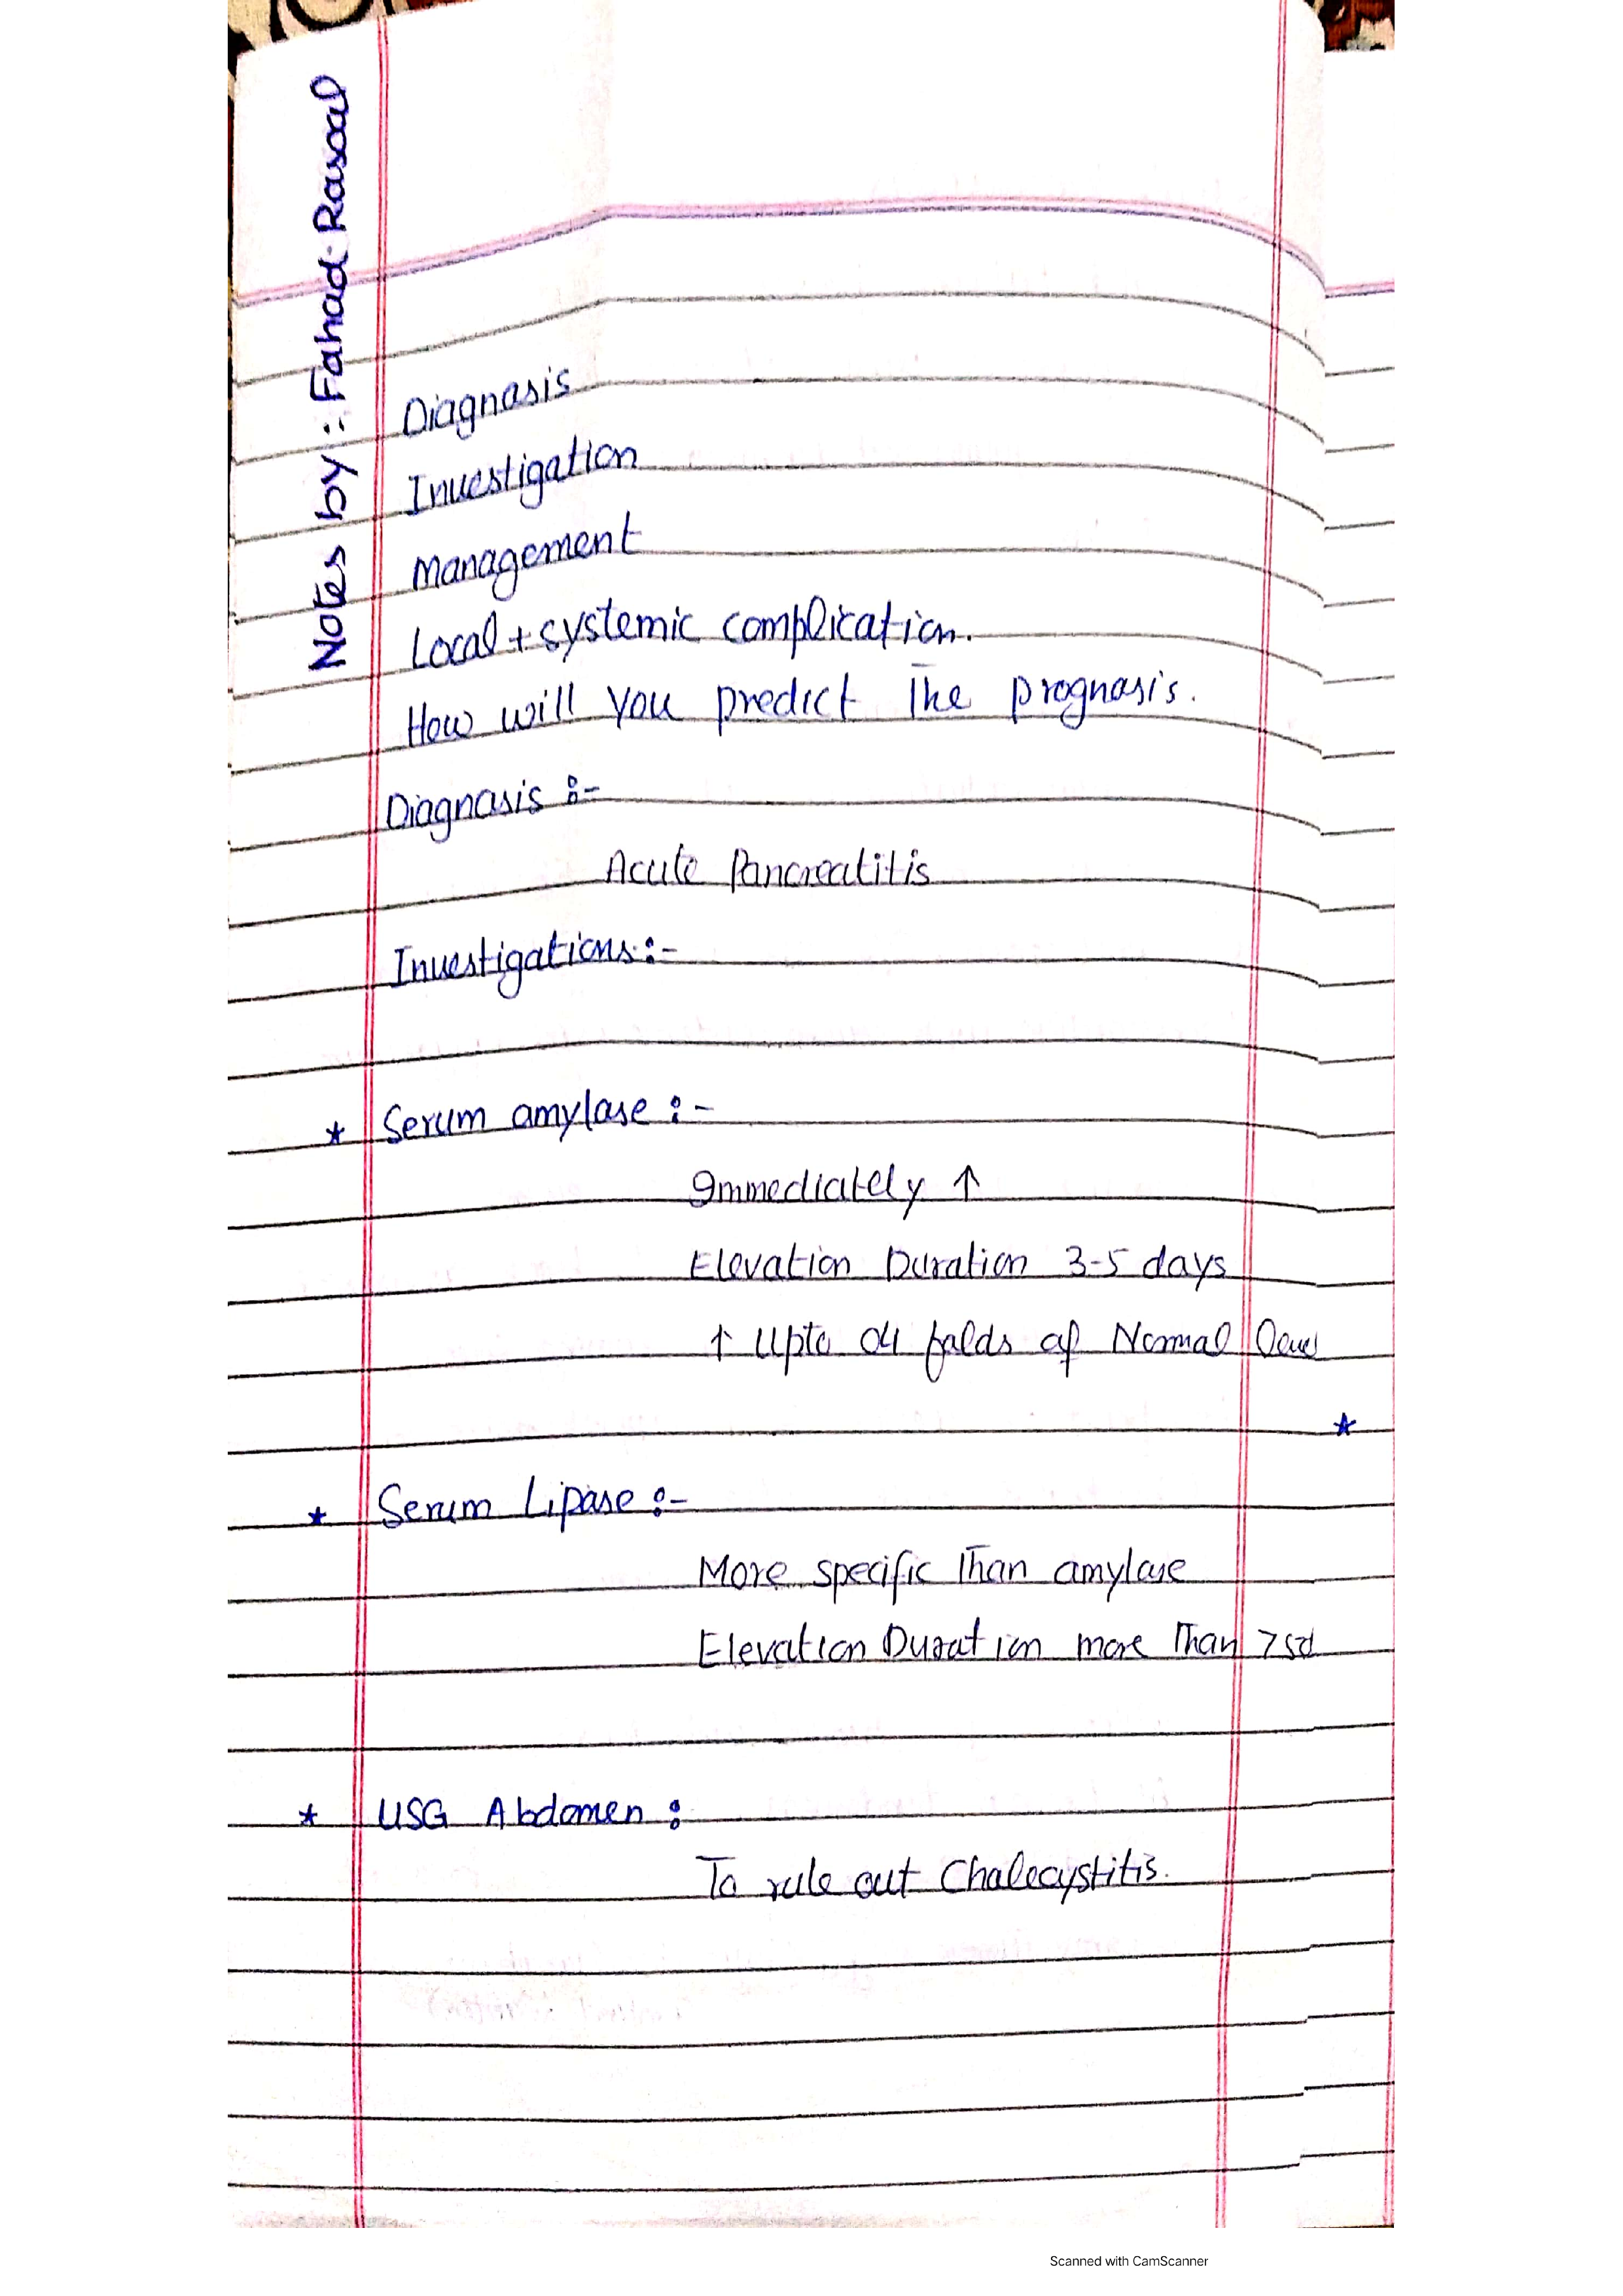 Notes by: Fahad Rasool
Diagnosis
Investigation
Management
Local + systemic complication.
How will you predict The prognosis.
Diagnosis :-
Acute Pancreatitis
Investigations:-
* Serum amylase :-
Immediately ↑
Elevation Duration 3-5 days
↑ Upto 04 folds of Normal level
*
* Serum Lipase :-
More specific Than amylase
Elevation Duration more Than
* USG Abdomen :
To rule out Cholecystitis.
Scanned with CamScanner